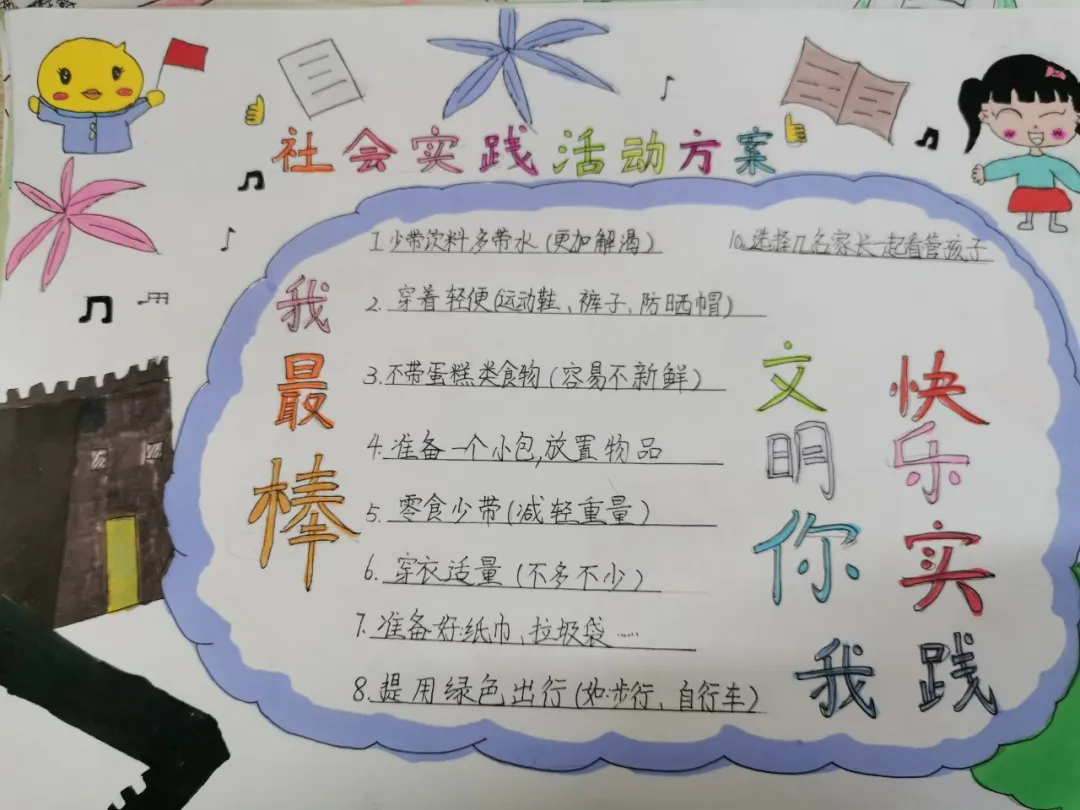 社会实践活动方案
1.少带饮料多带水(更加解渴)
2.穿着轻便(运动鞋、裤子、防晒帽)
3.不带蛋糕类食物(容易不新鲜)
4.准备一个小包,放置物品
5.零食少带(减轻重量)
6.穿衣适量(不多不少)
7.准备好纸巾、拉圾袋……
8.提用绿色出行(如:步行、自行车)
10.选择几名家长一起看管孩子
我最棒
文明你我
快乐实践